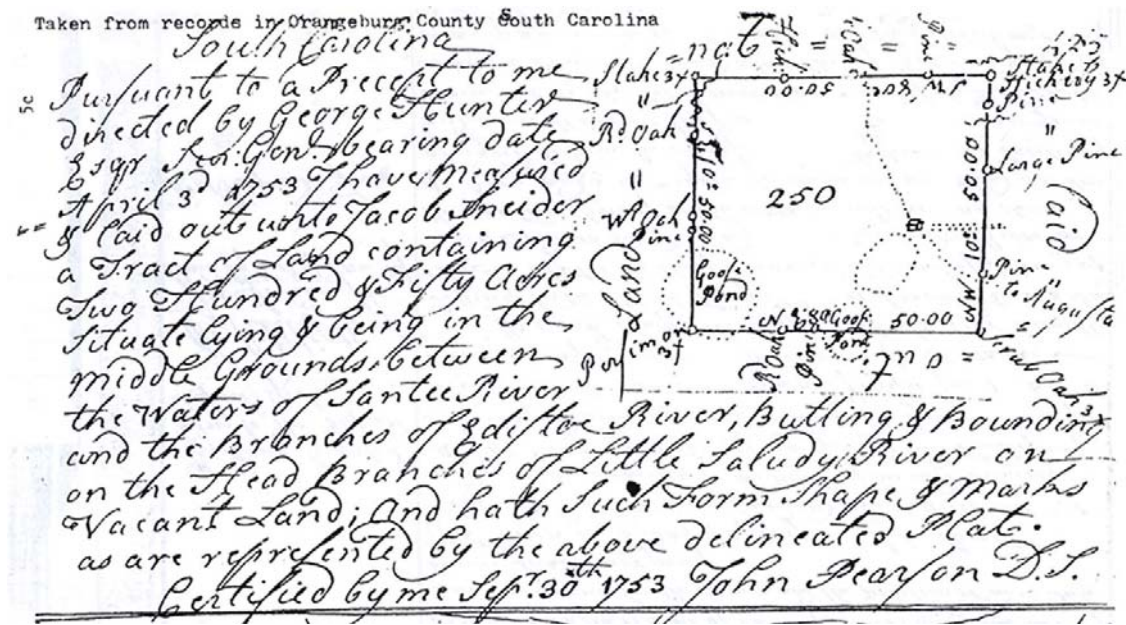 Taken from records in Orangeburg County South Carolina
South Carolina
Pursuant to a Precept to me
directed by George Hunter
Esqr Sur: Genl. bearing date
April 3d 1753 I have measured
& laid out unto Jacob Sneider
a Tract of Land containing
Two Hundred & Fifty Acres
situate lying & being in the
middle Grounds between
the Waters of Santee River
and the Branches of Edistoe River, Butling & Bounding
on the Head Branches of Little Saludy River on
Vacant Land; and hath Such Form Shape & Marks
as are represented by the above delineated Plat.
Certified by me Sepr. 30th 1753 John Pearson D.S.
Stake 3x
Hick
Oak
Pine
Stake &
Hickery 3x
50.00
Pine
Rd Oak
Large Pine
50.00
250
Wt Oak
Pine
50.00
Vacant
Land
Goose
Pond
Pine
to Augusta
50.00
Goose
Pond
Rd Oak
Pine
Oak 3x